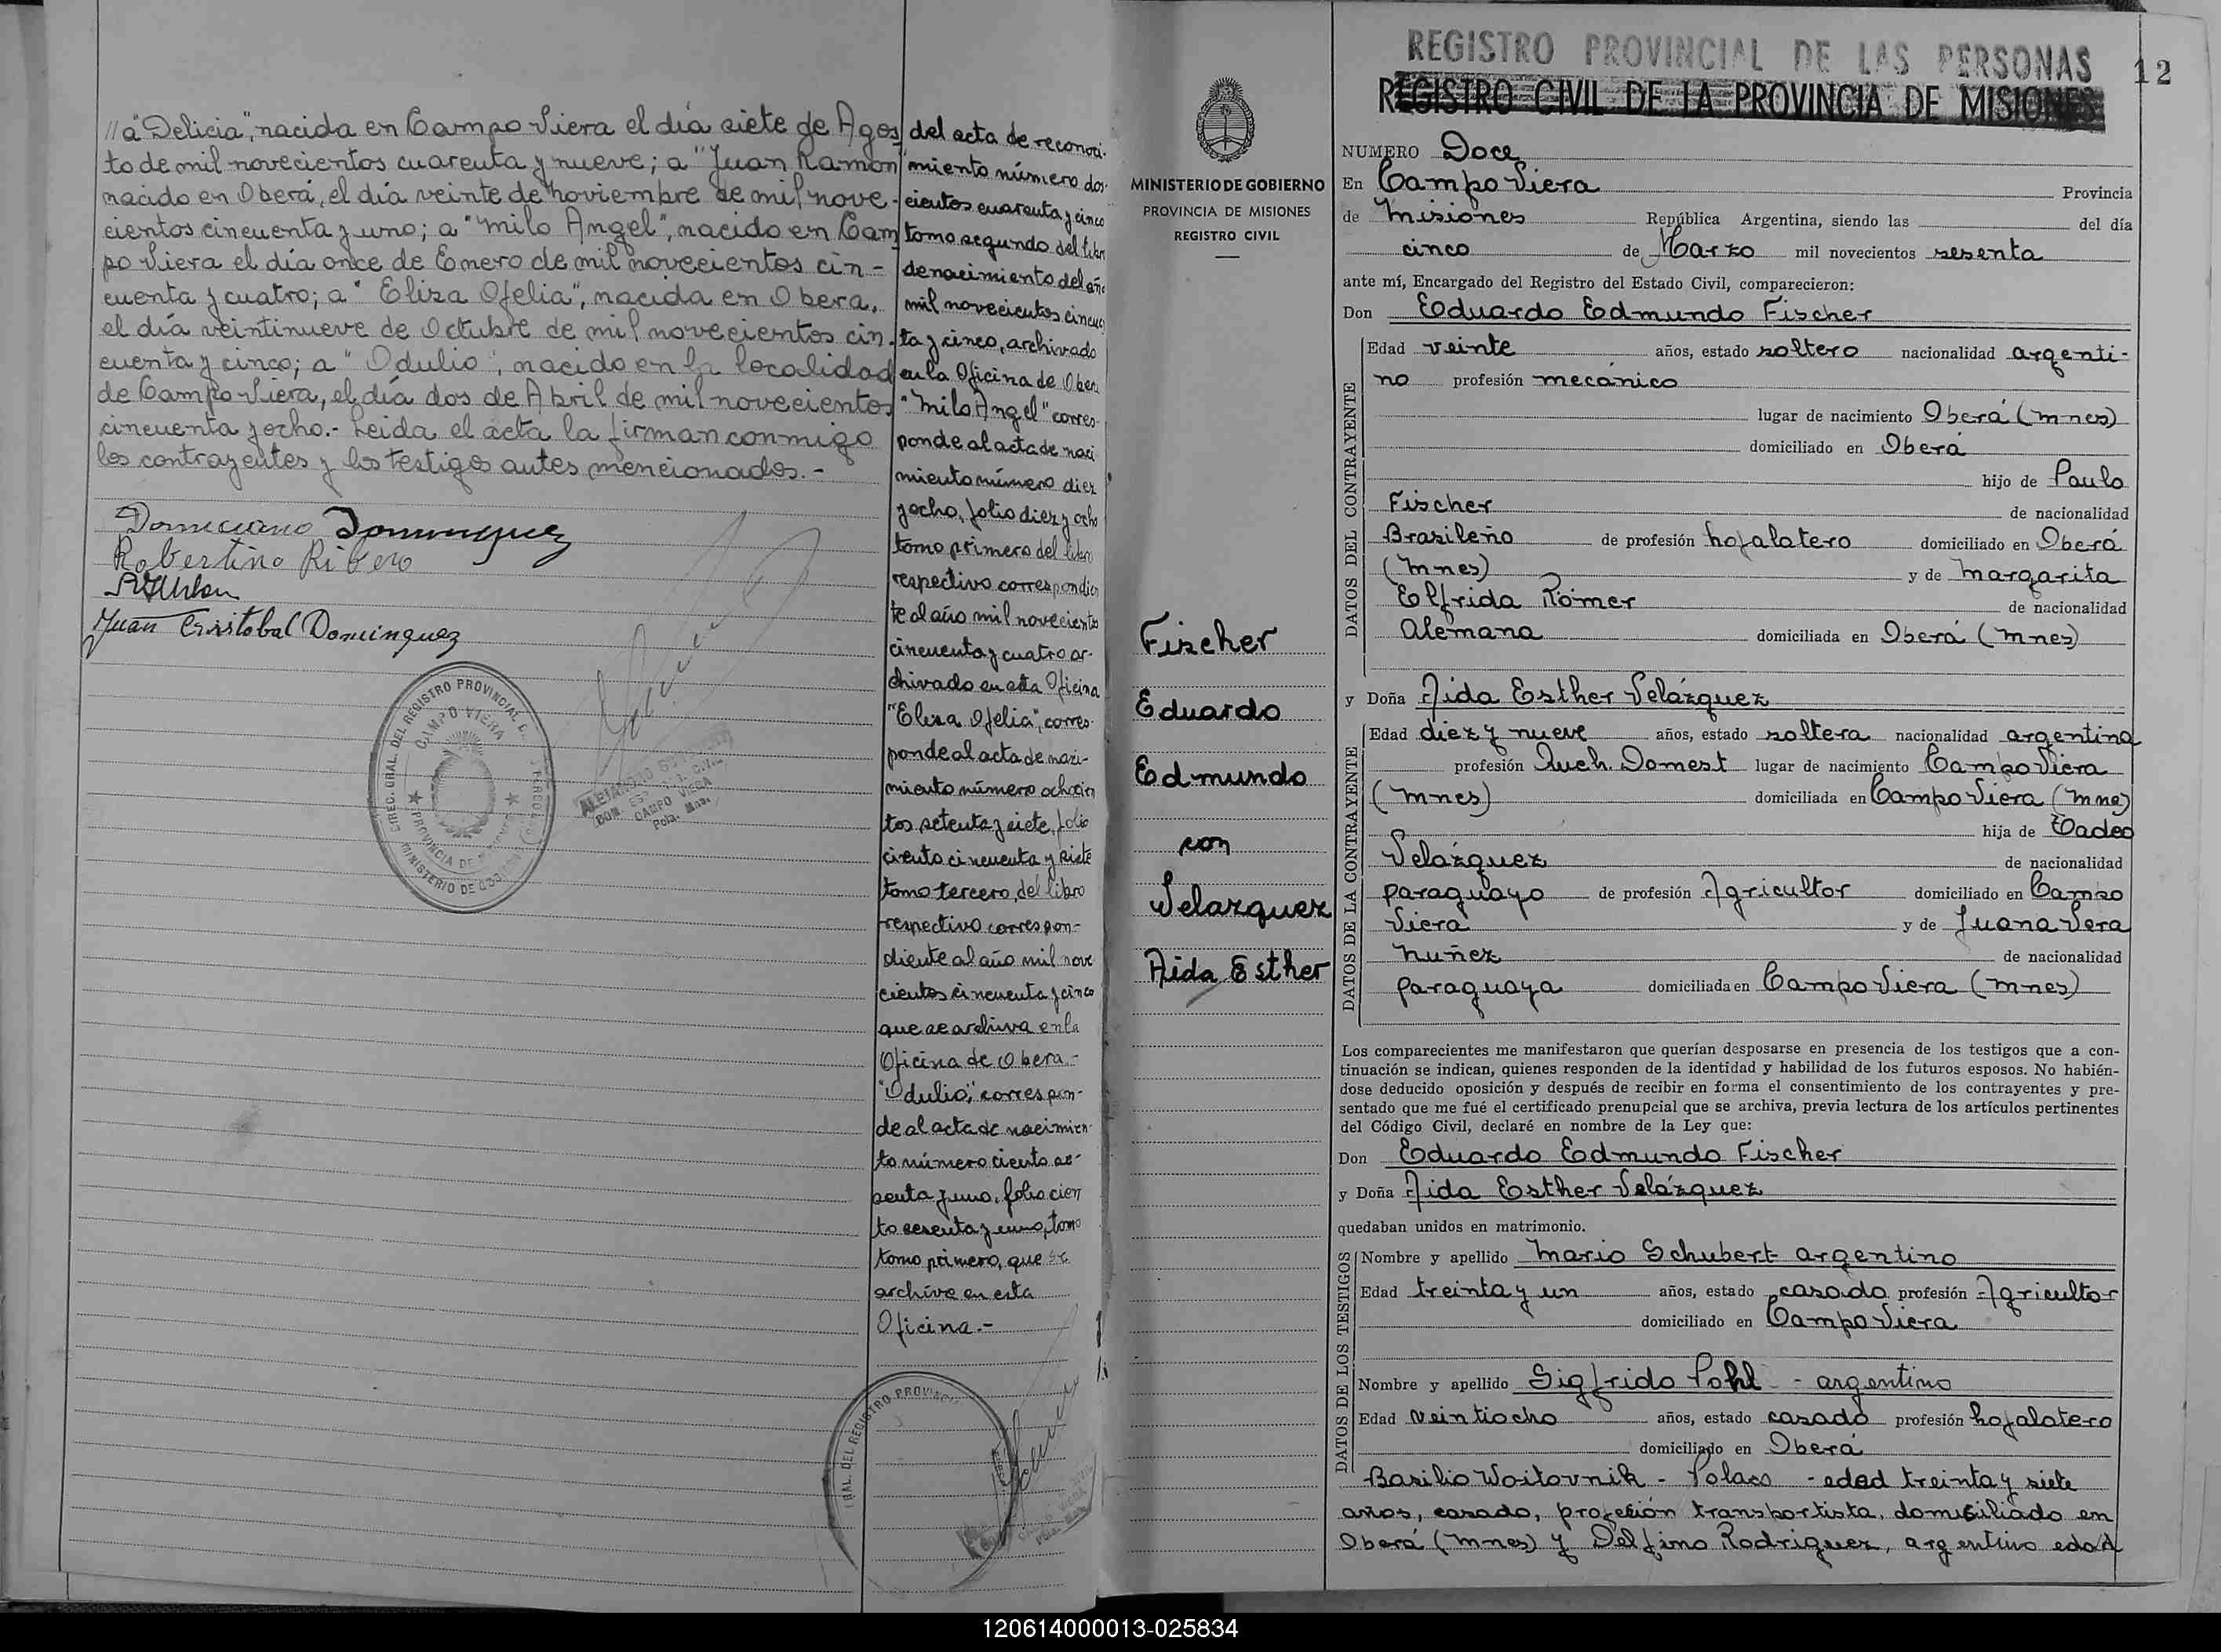 // a "Delicia", nacida en Campo Viera el día siete de Agos
to de mil novecientos cuarenta y nueve; a "Juan Ramón"
nacido en Oberá, el día veinte de noviembre de mil nove-
cientos cincuenta y uno; a "Milo Angel", nacido en Cam
po Viera el día once de Enero de mil novecientos cin-
cuenta y cuatro; a "Eliza Ofelia", nacida en Obera,
el día veintinueve de Octubre de mil novecientos cin-
cuenta y cinco; a "Odulio", nacido en la localidad
de Campo Viera, el día dos de Abril de mil novecientos
cincuenta y ocho.- Leida el acta la firman conmigo
los contrayentes y los testigos antes mencionados.-
Domiciano Dominguez
Robertino Ribero
Juan Cristobal Dominguez
DIREC. GRAL. DEL REGISTRO PROVINCIAL
CAMPO VIERA
PROVINCIA DE
MINISTERIO DE
CAMPO VIERA
Pcia. Mns.
del acta de reconoci-
miento número dos-
cientos cuarenta y cinco
tomo segundo del libro
de nacimiento del año
mil novecientos cincuen
ta y cinco, archivado
en la Oficina de Obera
"Milo Angel" corres-
ponde al acta de naci
miento número diez
y ocho, folio diez y ocho
tomo primero del libro
respectivo correspondien
te al año mil novecientos
cincuenta y cuatro ar-
chivado en esta Oficina
"Eliza Ofelia", corres-
ponde al acta de naci-
miento número ochocien
tos setenta y siete, folio
ciento cincuenta y siete
tomo tercero, del libro
respectivo correspon-
diente al año mil nove
cientos cincuenta y cinco
que se archiva en la
Oficina de Obera.-
"Odulio", correspon-
de al acta de nacimien-
to número ciento se-
senta y uno, folio cien
to sesenta y uno, tomo
tomo primero, que se
archiva en esta
Oficina.-
GRAL. DEL REGISTRO PROVINCIAL
MINISTERIO DE GOBIERNO
PROVINCIA DE MISIONES
REGISTRO CIVIL
Fischer
Eduardo
Edmundo
con
Velazquez
Aida Esther
REGISTRO PROVINCIAL DE LAS PERSONAS
12
REGISTRO CIVIL DE LA PROVINCIA DE MISIONES
NUMERO Doce
En Campo Viera Provincia
de Misiones República Argentina, siendo las del día
cinco de Marzo mil novecientos sesenta
ante mí, Encargado del Registro del Estado Civil, comparecieron:
Don Eduardo Edmundo Fischer
DATOS DEL CONTRAYENTE
Edad veinte años, estado soltero nacionalidad argenti-
no profesión mecánico
lugar de nacimiento Oberá (Mnes)
domiciliado en Oberá
hijo de Paulo
Fischer de nacionalidad
Brasileño de profesión hojalatero domiciliado en Oberá
(Mnes) y de Margarita
Elfrida Römer de nacionalidad
Alemana domiciliada en Oberá (Mnes)
y Doña Aida Esther Velázquez
DATOS DE LA CONTRAYENTE
Edad diez y nueve años, estado soltera nacionalidad argentina
profesión Queh. Domest lugar de nacimiento Campo Viera
(Mnes) domiciliada en Campo Viera (Mnes)
hija de Tadeo
Velázquez de nacionalidad
paraguayo de profesión Agricultor domiciliado en Campo
Viera y de Juana Vera
Nuñez de nacionalidad
paraguaya domiciliada en Campo Viera (Mnes)
Los comparecientes me manifestaron que querían desposarse en presencia de los testigos que a con-
tinuación se indican, quienes responden de la identidad y habilidad de los futuros esposos. No habién-
dose deducido oposición y después de recibir en forma el consentimiento de los contrayentes y pre-
sentado que me fué el certificado prenupcial que se archiva, previa lectura de los artículos pertinentes
del Código Civil, declaré en nombre de la Ley que:
Don Eduardo Edmundo Fischer
y Doña Aida Esther Velázquez
quedaban unidos en matrimonio.
DATOS DE LOS TESTIGOS
Nombre y apellido Mario Schubert argentino
Edad treinta y un años, estado casado profesión Agricultor
domiciliado en Campo Viera
Nombre y apellido Sigfrido Pohl - argentino
Edad veintiocho años, estado casado profesión hojalatero
domiciliado en Oberá
Basilio Woitovnik - Polaco - edad treinta y siete
años, casado, profesión transportista, domisiliado en
Oberá (Mnes) y Delfino Rodriguez, argentino edad
120614000013-025834